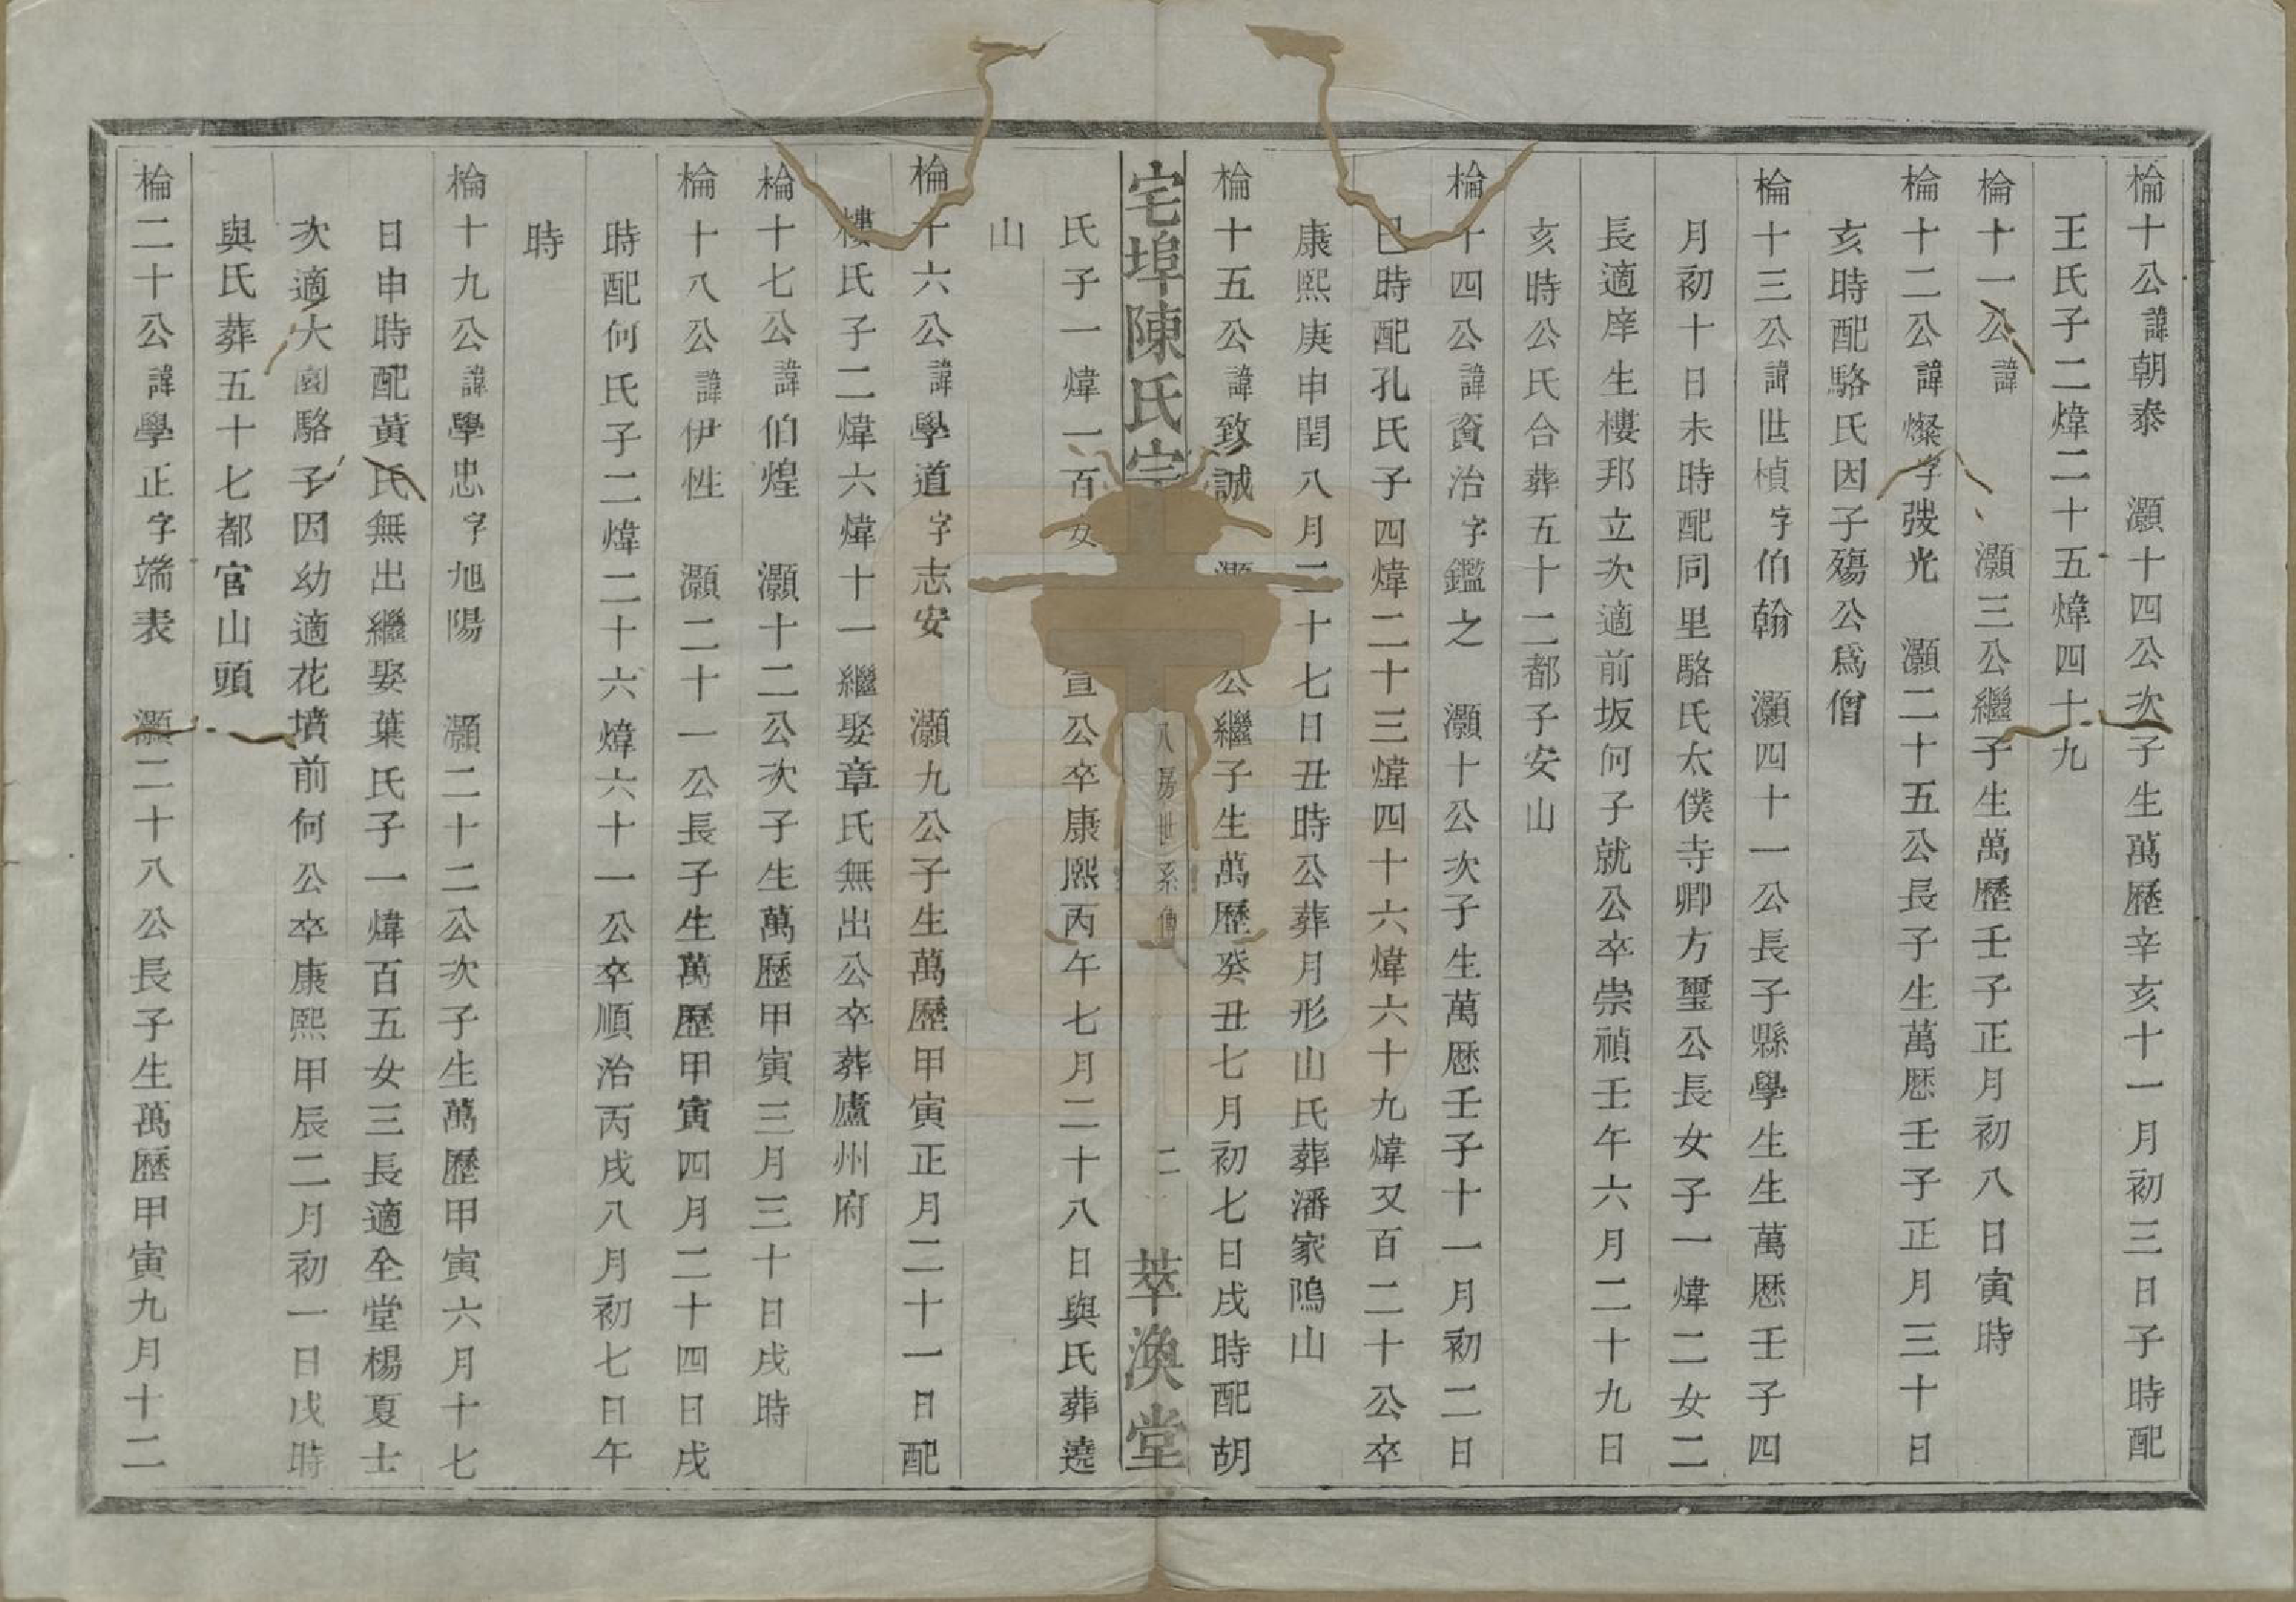 棆十公諱朝泰　灝十四公次子生萬歷辛亥十一月初三日子時配
王氏子二煒二十五煒四十九
棆十一公諱　灝三公繼子生萬歷壬子正月初八日寅時
棆十二公諱燦字弢光　灝二十五公長子生萬歷壬子正月三十日
亥時配駱氏因子殤公爲僧
棆十三公諱世楨字伯翰　灝四十一公長子縣學生生萬歷壬子四
月初十日未時配同里駱氏太僕寺卿方璽公長女子一煒二女二
長適庠生樓邦立次適前坂何子就公卒崇禎壬午六月二十九日
亥時公氏合葬五十二都子安山
棆十四公諱資治字鑑之　灝十公次子生萬歷壬子十一月初二日
巳時配孔氏子四煒二十三煒四十六煒六十九煒又百二十公卒
康熙庚申閏八月二十七日丑時公葬月形山氏葬潘家隖山
棆十五公諱致誠　灝公繼子生萬歷癸丑七月初七日戌時配胡
宅埠陳氏宗　八房世系傳　二　萃渙堂
氏子一煒一百女宣公卒康熙丙午七月二十八日與氏葬遶
山
棆十六公諱學道字志安　灝九公子生萬歷甲寅正月二十一日配
樓氏子二煒六煒十一繼娶章氏無出公卒葬廬州府
棆十七公諱伯煌　灝十二公次子生萬歷甲寅三月三十日戌時
棆十八公諱伊性　灝二十一公長子生萬歷甲寅四月二十四日戌
時配何氏子二煒二十六煒六十一公卒順治丙戌八月初七日午
時
棆十九公諱學忠字旭陽　灝二十二公次子生萬歷甲寅六月十七
日申時配黃氏無出繼娶葉氏子一煒百五女三長適全堂楊夏士
次適大園駱子因幼適花墳前何公卒康熙甲辰二月初一日戌時
與氏葬五十七都官山頭
棆二十公諱學正字端表　灝二十八公長子生萬歷甲寅九月十二